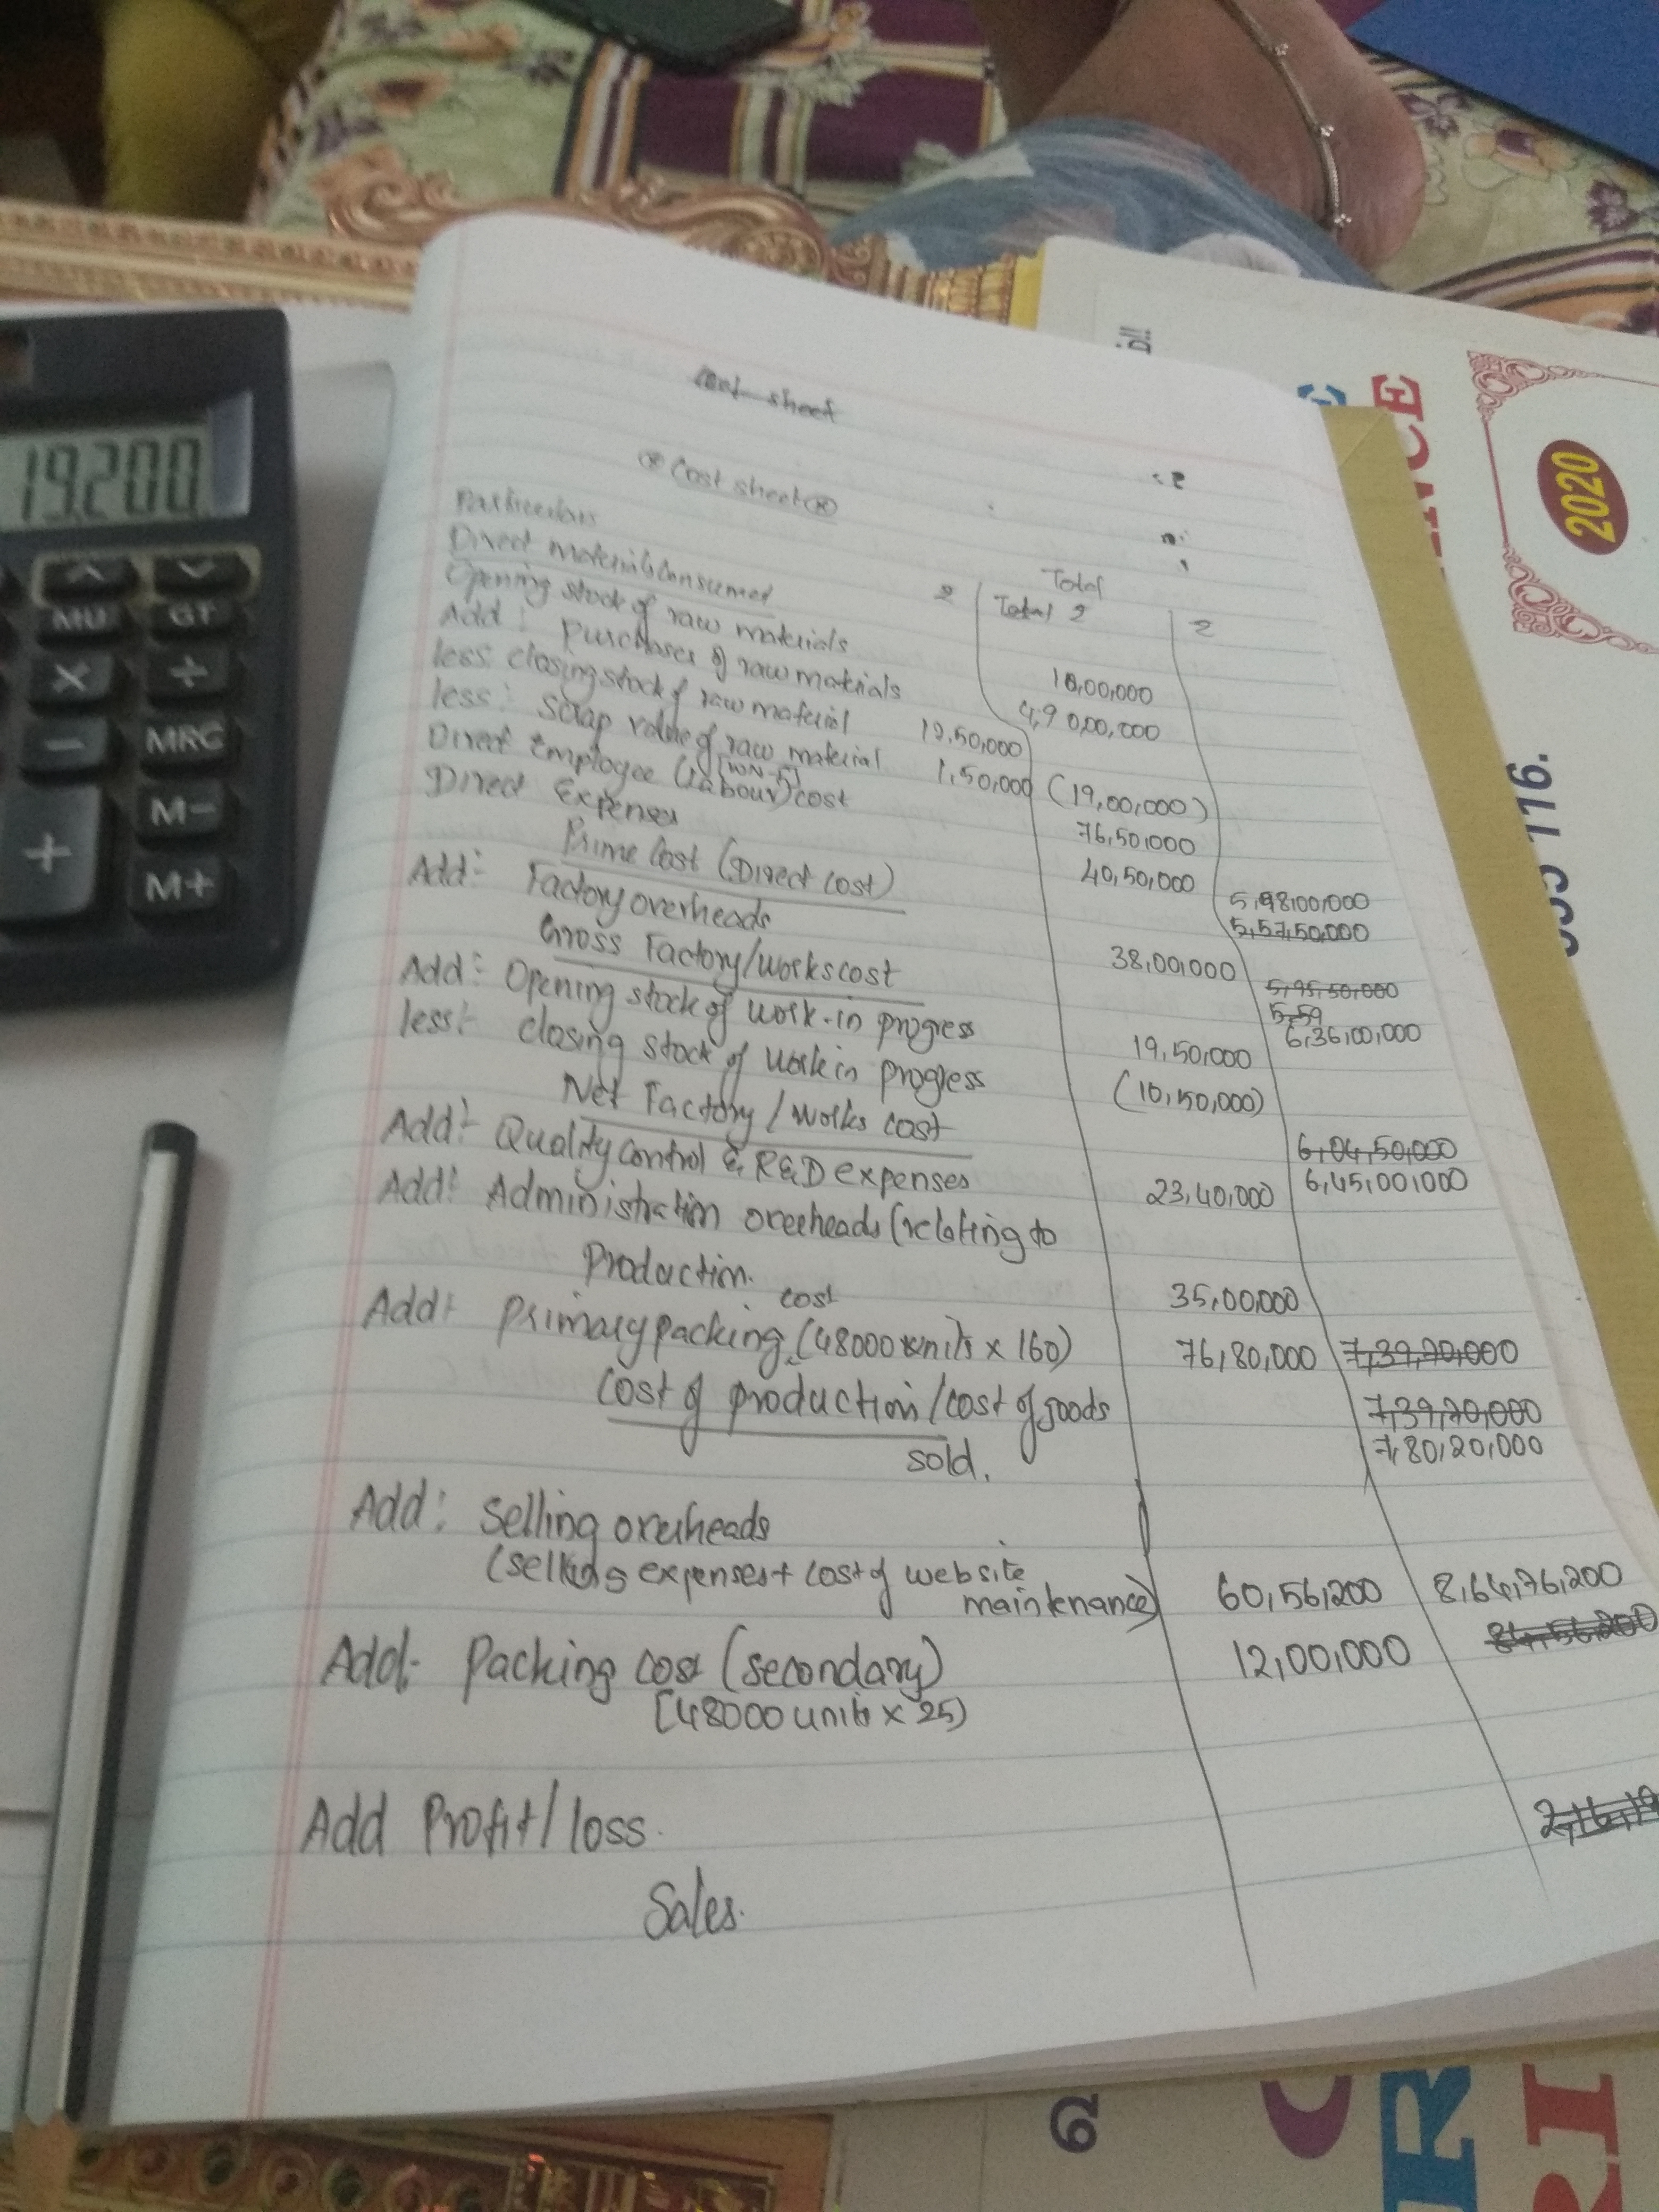 Cost sheet
Cost sheet
Particulars
Total
Direct materials consumed
₹
Total ₹
₹
Opening stock of raw materials
18,00,000
Add: Purchases of raw materials
4,90,00,000
less: closing stock of raw material 12,50,000
less: Scrap value of raw material 1,50,000 (19,00,000)
[WN-5]
Direct Employee (labour) cost 76,50,000
Direct Expenses 40,50,000
Prime Cost (Direct cost) 5,98,00,000
5,57,50,000
Add:- Factory overheads 38,00,000
Gross Factory/works cost 5,95,50,000
5,59
6,36,00,000
Add:- Opening stock of work-in progress 19,50,000
less:- closing stock of work in progress (10,50,000)
Net Factory / Works cost 6,04,50,000
6,45,00,000
Add:- Quality control & R&D expenses 23,40,000
Add: Administration overheads (relating to
Production. 35,00,000
Add: Primary packing cost (48000 units x 160) 76,80,000 7,39,70,000
Cost of production/cost of goods 7,39,70,000
sold. 7,80,20,000
Add: Selling overheads
(selling expenses + cost of website
maintenance) 60,56,200 8,64,76,200
84,56,200
Add:- Packing cost (secondary) 12,00,000
[48000 units x 25)
2,16,19
Add Profit/loss.
Sales.
19,200
MU
GT
MRC
M-
M+
2020
116.